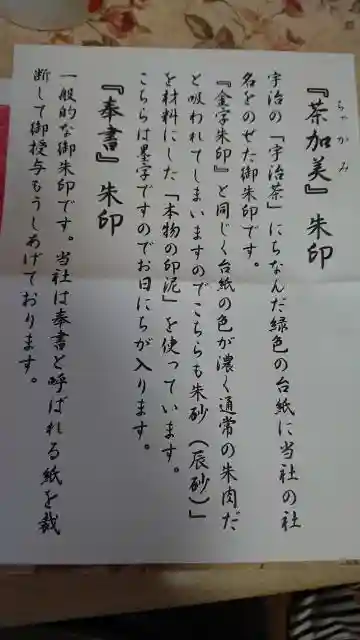 ちゃがみ
『茶加美』朱印
宇治の「宇治茶」にちなんだ緑色の台紙に当社の社
名をのせた御朱印です。
『金字朱印』と同じく台紙の色が濃く通常の朱肉だ
と吸われてしまいますのでこちらも朱砂（辰砂）」
を材料にした「本物の印泥」を使っています。
こちらは墨字ですのでお日にちが入ります。
『奉書』朱印
一般的な御朱印です。当社は奉書と呼ばれる紙を裁
断して御授与もうしあげております。